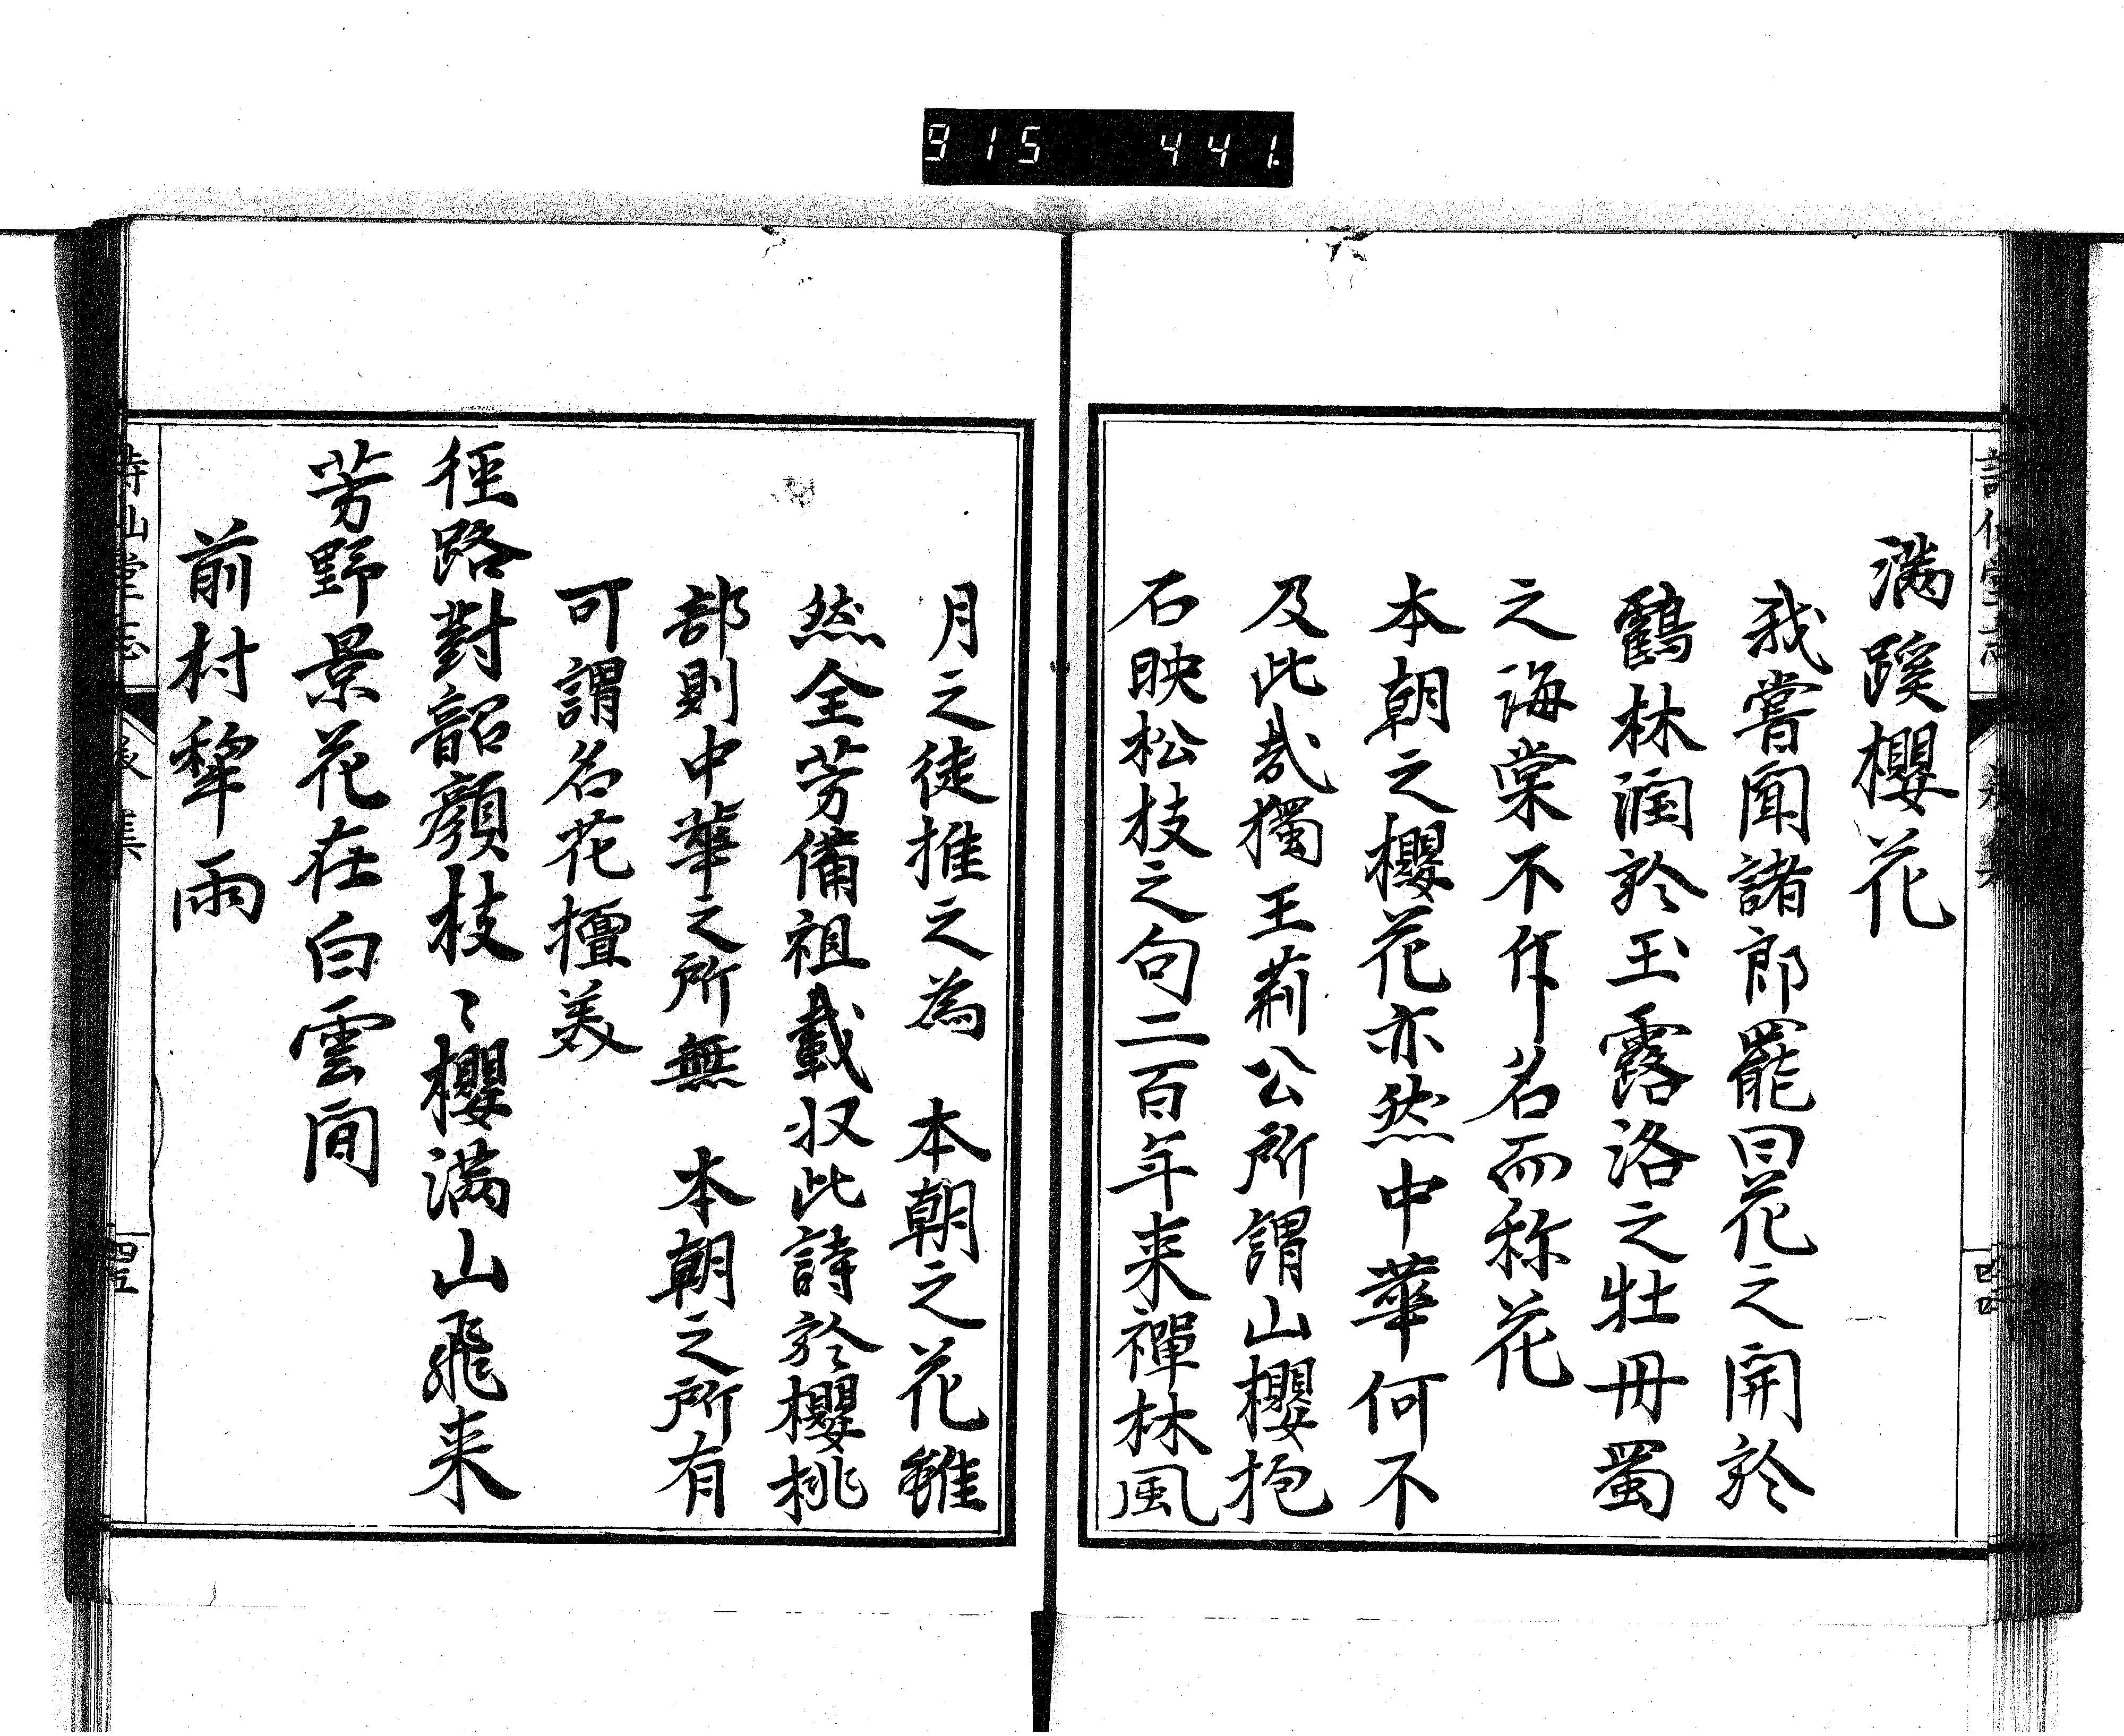 915 441.
滿蹊櫻花
我嘗聞諸郎罷曰花之開於
鶴林潤於玉露洛之牡丹蜀
之海棠不作名而称花
本朝之櫻花亦然中華何不
及此哉獨王荊公所謂山櫻抱
石映松枝之句二百年来禪林風
月之徒推之為　本朝之花雖
然全芳備祖載収此詩於櫻桃
部則中華之所無　本朝之所有
可謂名花擅美
徑路對韶顏枝〻櫻滿山飛来
芳野景花在白雲间
前村犂雨